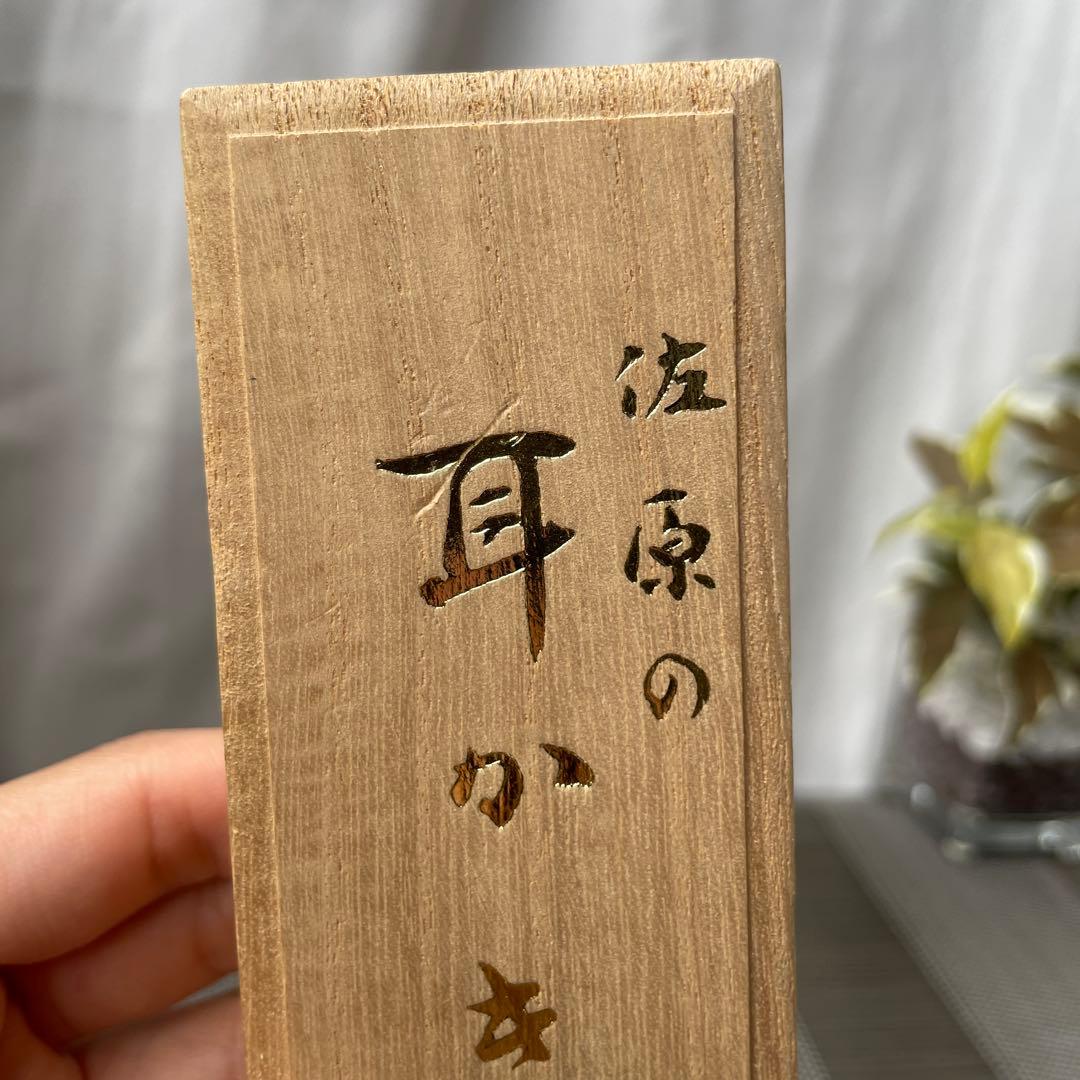 佐原の
耳かき